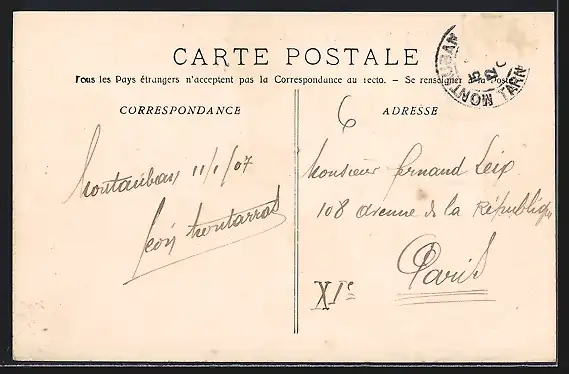 CARTE POSTALE
Tous les Pays étrangers n'acceptent pas la Correspondance au recto. — Se renseigner à la Poste
MONTAUBAN
TARN
CORRESPONDANCE
ADRESSE
6
Montauban 11/1/07
Léon Montarral
Monsieur Fernand Leip
108 avenue de la République
Paris
XIe